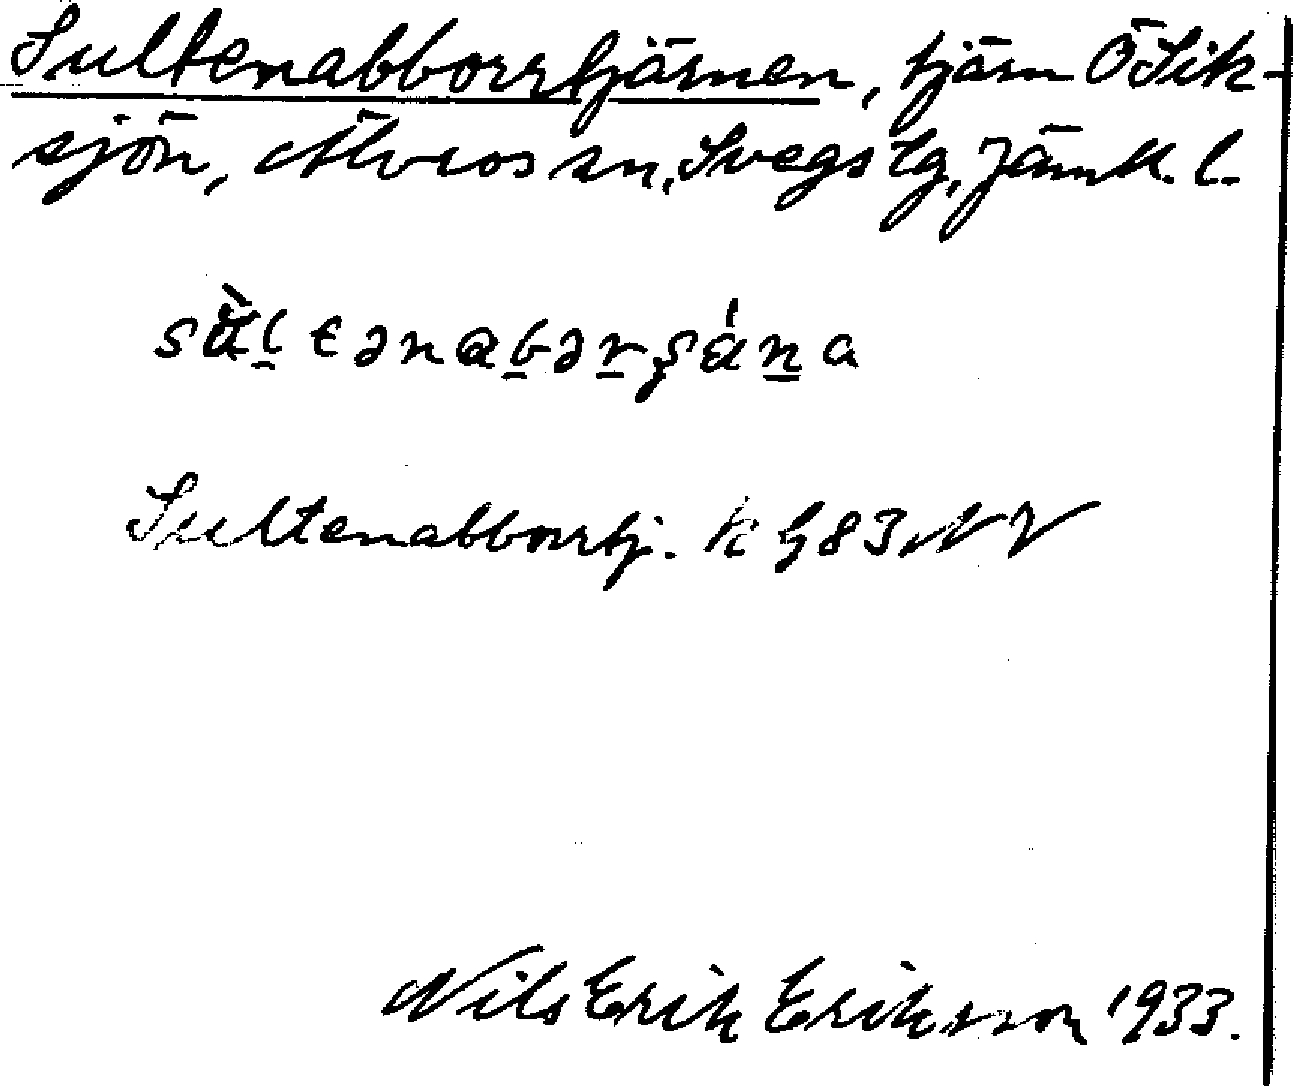 Sultenabborrtjärnen, tjärn Ö Sik-
sjön, Älvros sn, Svegs tg, Jämtl. l.
Sultenabborrtj. k G 83 NV
Nils Erik Eriksson 1933.